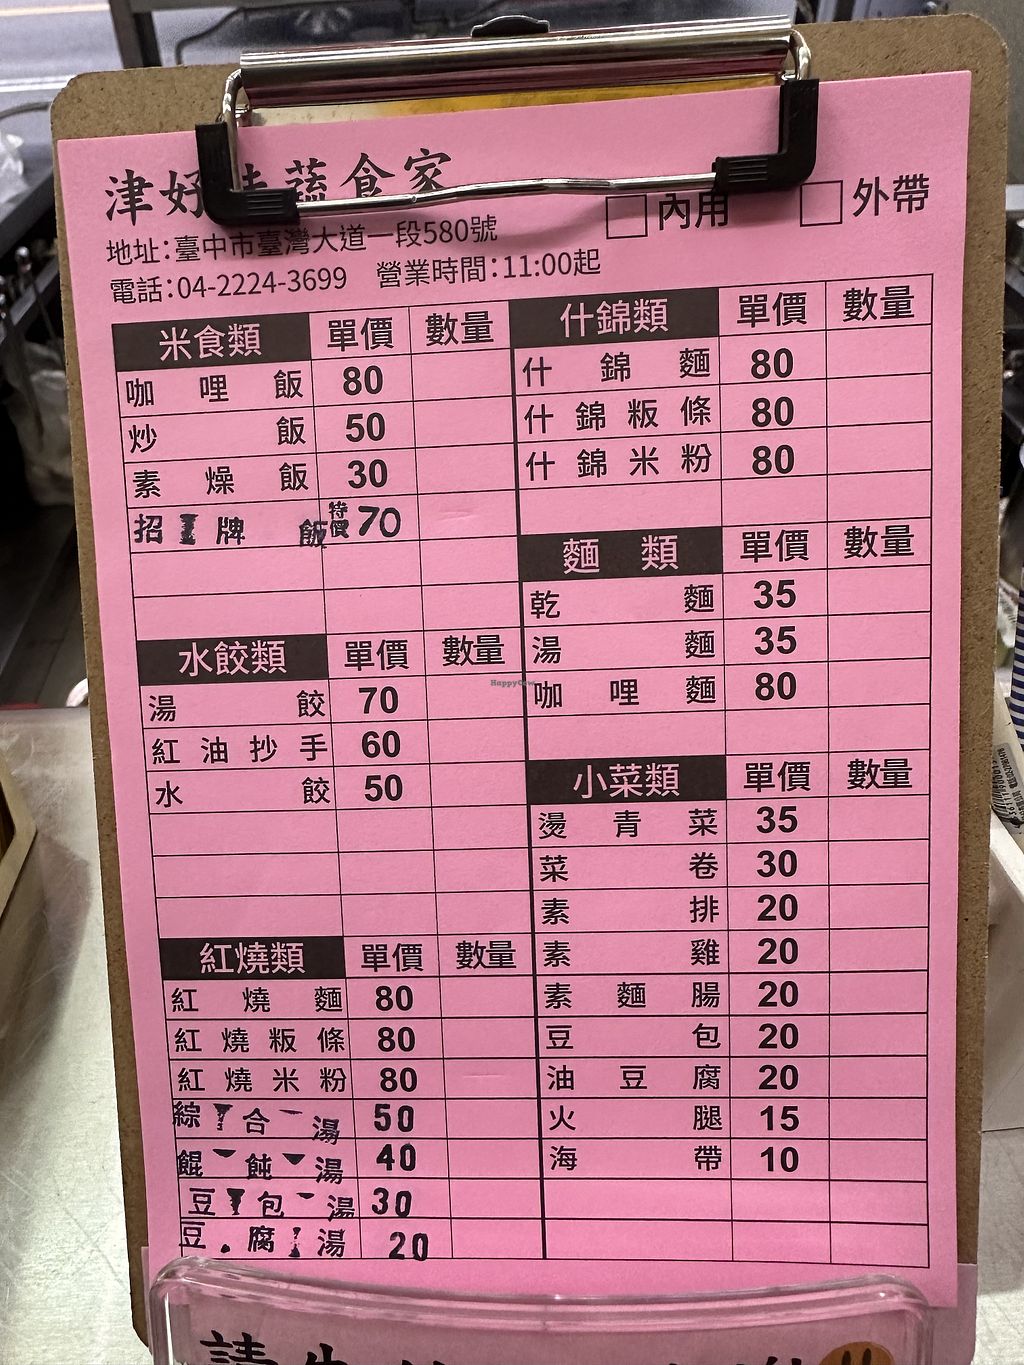 津好 蔬食家
地址:臺中市臺灣大道一段580號
電話:04-2224-3699 營業時間:11:00起
內用 外帶
米食類 單價 數量
咖哩飯 80
炒飯 50
素燥飯 30
招牌飯 特價70
水餃類 單價 數量
湯餃 70
紅油抄手 60
水餃 50
紅燒類 單價 數量
紅燒麵 80
紅燒粄條 80
紅燒米粉 80
綜合湯 50
餛飩湯 40
豆包湯 30
豆腐湯 20
什錦類 單價 數量
什錦麵 80
什錦粄條 80
什錦米粉 80
麵類 單價 數量
乾麵 35
湯麵 35
咖哩麵 80
小菜類 單價 數量
燙青菜 35
菜卷 30
素排 20
素雞 20
素麵腸 20
豆包 20
油豆腐 20
火腿 15
海帶 10
HappyCow
請先